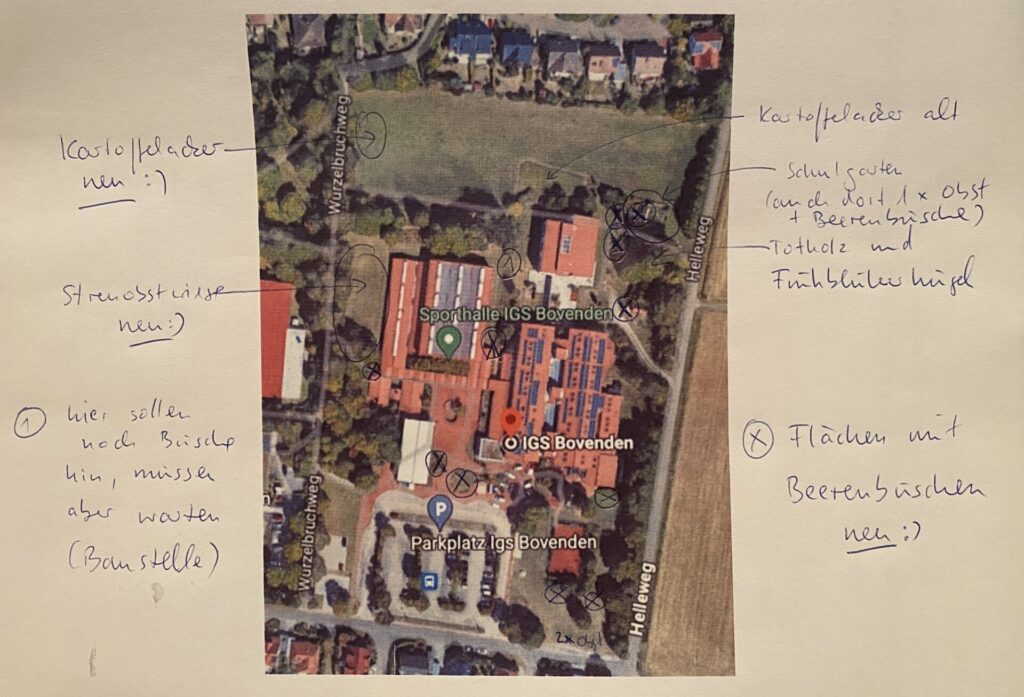 Kartoffelacker
neu :)
Streuobstwiese
neu :)
① hier sollen
noch Büsche
hin, müssen
aber warten
(Baustelle)
Wurzelbruchweg
Wurzelbruchweg
Wurzelbruchweg
Sporthalle IGS Bovenden
IGS Bovenden
P
Parkplatz Igs Bovenden
2x Obst
1
Helleweg
Helleweg
Kartoffelacker alt
Schulgarten
(auch dort 1x Obst
+ Beerenbüsche)
Totholz und
Frühblüherhügel
ⓧ Flächen mit
Beerenbüschen
neu :)